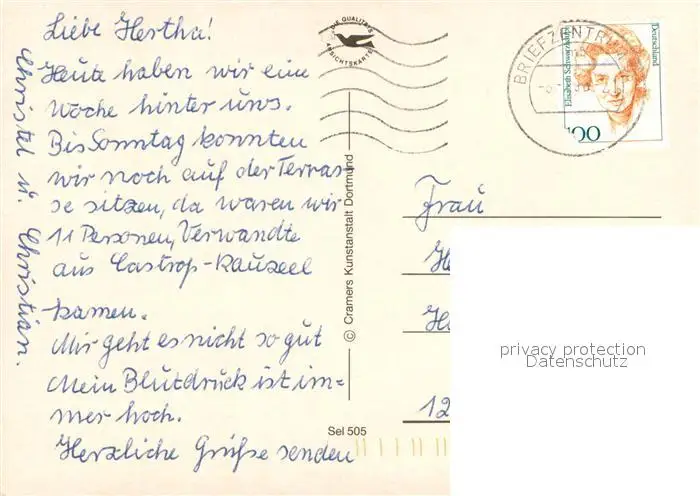 Liebe Hertha!
Heute haben wir eine
Woche hinter uns.
Bis Sonntag konnten
wir noch auf der Terras-
se sitzen, da waren wir
11 Personen, Verwandte
aus Castrop-Rauxel
kamen.
Mir geht es nicht so gut
Mein Blutdruck ist im=
mer hoch.
Herzliche Grüße senden
Christel u. Christian.
DIE QUALITÄTS
ANSICHTSKARTE
© Cramers Kunstanstalt Dortmund
Sel 505
BRIEFZENTRUM
Elisabeth Schwarzhaupt
Deutschland
100
Frau
12
privacy protection
Datenschutz